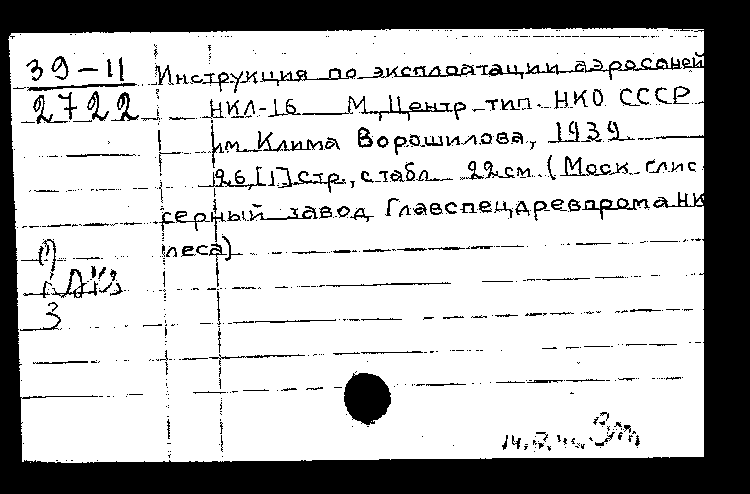 39-11
2722
Инструкция по эксплоатации аэросаней
НКЛ-16 М, Центр тип. НКО СССР
им. Клима Ворошилова, 1939
26,[1] стр., с табл. 22 см. (Моск глис
серный завод Главспецдревпрома НК
леса)
3